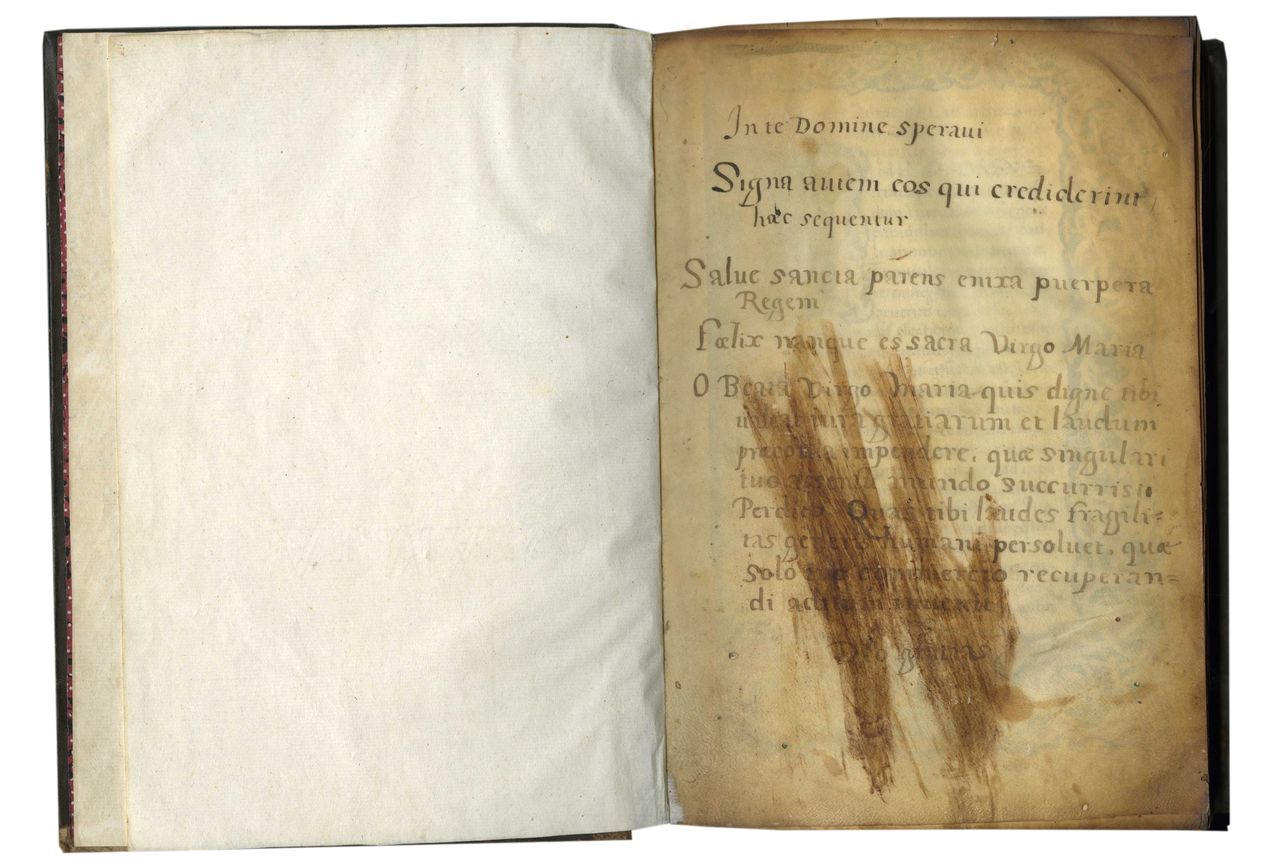 In te Domine speraui
Signa autem eos qui crediderint,
hæc sequentur
Salue sancta parens enixa puerpera
Regem
Fœlix nanque es sacra Virgo Maria
O Beata Virgo Maria quis digne tibi
iura gratiarum et laudum
præconia impendere, quæ singulari
tuo assensu mundo succurristi
Perdito. Quas tibi laudes fragili=
tas generis humani persoluet, quæ
solo tuo commercio recuperan=
di aditum inuenit
Deo gratias